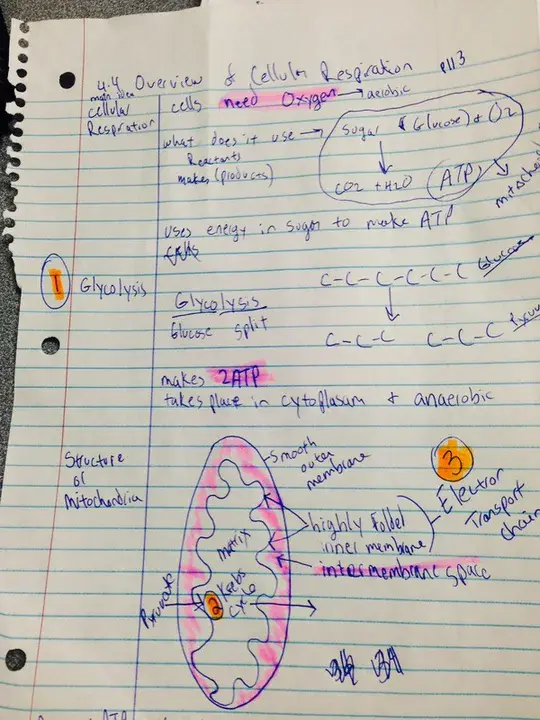 4.4 Overview of Cellular Respiration p113
main idea
cellular
Respiration
cells need Oxygen → aerobic
what does it use →
Reactants
makes (products)
Sugar (Glucose) + O2
CO2 + H2O ATP
uses energy in sugar to make ATP
1 Glycolysis
Glycolysis
Glucose split
C-C-C-C-C-C Glucose
C-C-C C-C-C
makes 2ATP
takes place in cytoplasum + anaerobic
Structure
of
Mitochondria
smooth
outer
membrane
3
Electron
Transport
chain
highly folded
inner membrane
intermembrane space
matrix
Pyruvate
2 Krebs
cycle